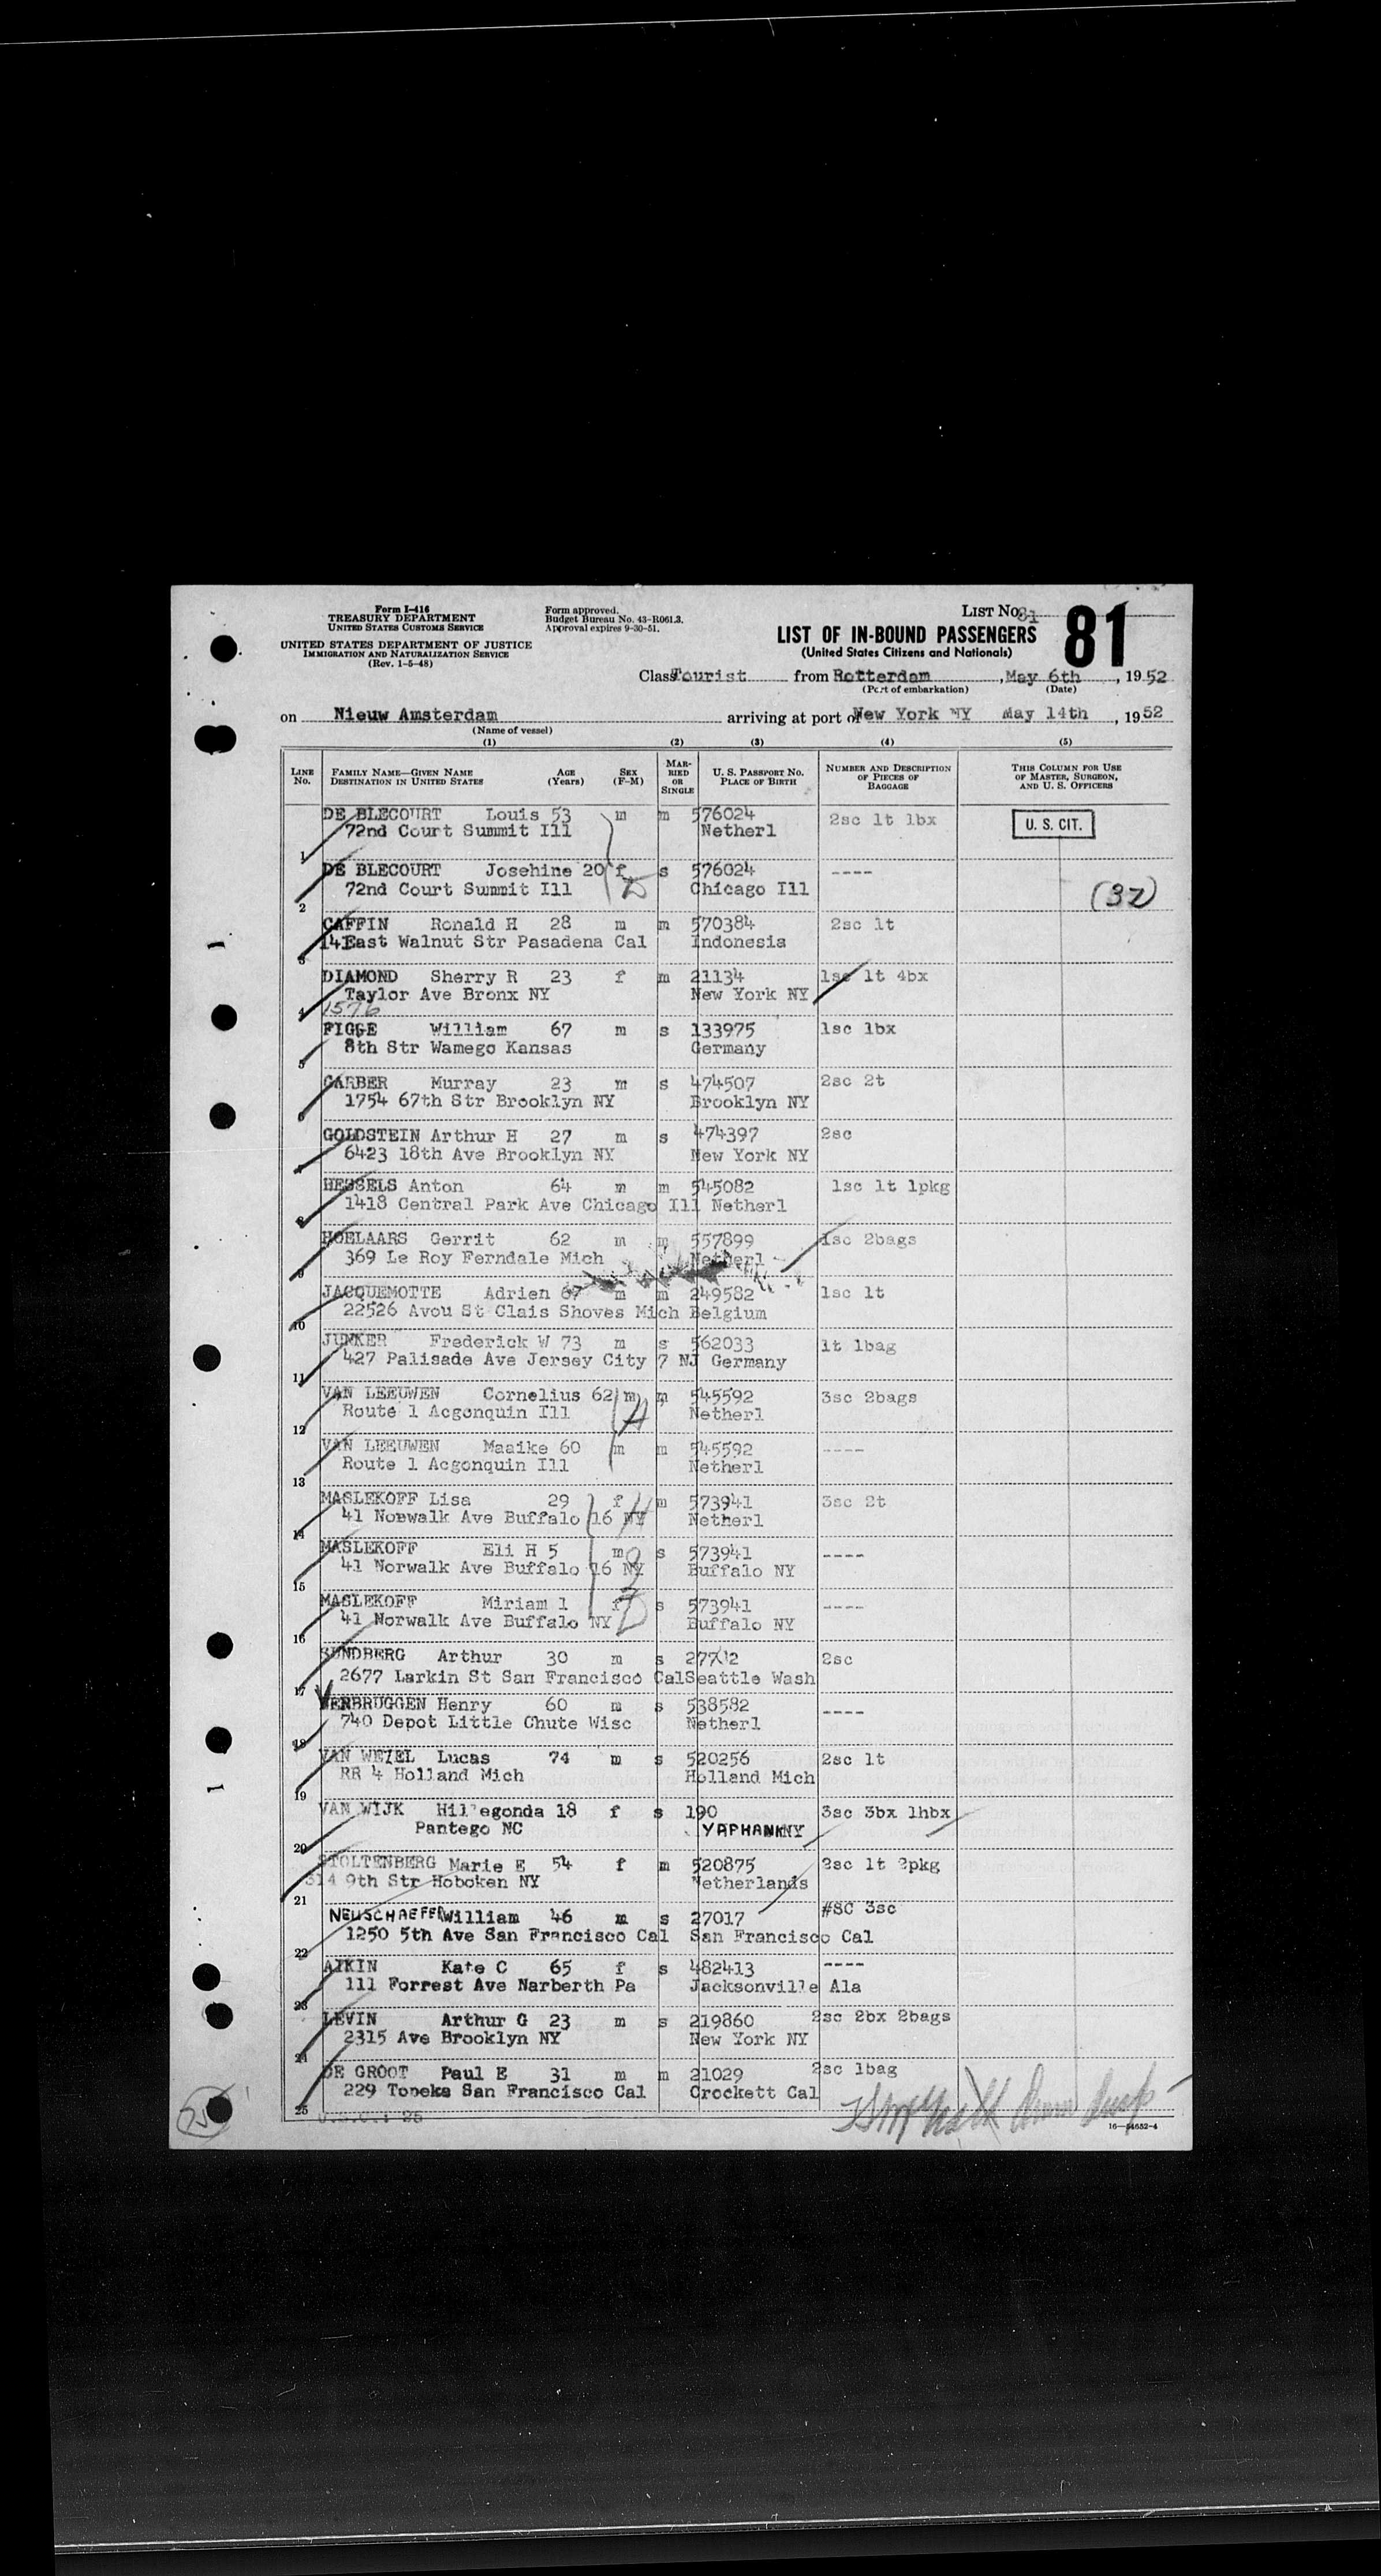 Form I-416
TREASURY DEPARTMENT
UNITED STATES CUSTOMS SERVICE
UNITED STATES DEPARTMENT OF JUSTICE
IMMIGRATION AND NATURALIZATION SERVICE
(Rev. 1-5-48)
Form approved.
Budget Bureau No. 43-R061.3.
Approval expires 9-30-51.
LIST No. 81
81
LIST OF IN-BOUND PASSENGERS
(United States Citizens and Nationals)
Class Tourist from Rotterdam , May 6th , 1952
(Port of embarkation) (Date)
on Nieuw Amsterdam arriving at port of New York NY May 14th , 1952
(Name of vessel)
(1) (2) (3) (4) (5)
LINE No. FAMILY NAME—GIVEN NAME DESTINATION IN UNITED STATES AGE (Years) SEX (F-M) MARRIED OR SINGLE U. S. PASSPORT No. PLACE OF BIRTH NUMBER AND DESCRIPTION OF PIECES OF BAGGAGE THIS COLUMN FOR USE OF MASTER, SURGEON, AND U. S. OFFICERS
DE BLECOURT Louis 53 m m 576024 2sc 1t 1bx U. S. CIT.
1 72nd Court Summit Ill Netherl
DE BLECOURT Josehine 20 f s 576024 ----
2 72nd Court Summit Ill Chicago Ill (32)
CAFFIN Ronald H 28 m m 570384 2sc 1t
3 14East Walnut Str Pasadena Cal Indonesia
DIAMOND Sherry R 23 f m 21134 1sc 1t 4bx
Taylor Ave Bronx NY New York NY
4 1576
FIGGE William 67 m s 133975 1sc 1bx
5 8th Str Wamego Kansas Germany
GARBER Murray 23 m s 474507 2sc 2t
6 1754 67th Str Brooklyn NY Brooklyn NY
GOLDSTEIN Arthur H 27 m s 474397 2sc
7 6423 18th Ave Brooklyn NY New York NY
HESSELS Anton 64 m m 545082 1sc 1t 1pkg
8 1418 Central Park Ave Chicago Ill Netherl
HOELAARS Gerrit 62 m m 557899 1sc 2bags
9 369 Le Roy Ferndale Mich Netherl
JACQUEMOTTE Adrien 67 m m 249582 1sc 1t
10 22526 Avou St Clais Shoves Mich Belgium
JUNKER Frederick W 73 m s 562033 1t 1bag
11 427 Palisade Ave Jersey City 7 NJ Germany
VAN LEEUWEN Cornelius 62 m m 545592 3sc 2bags
12 Route 1 Acgonquin Ill Netherl
VAN LEEUWEN Maaike 60 m m 545592 ----
13 Route 1 Acgonquin Ill Netherl
MASLEKOFF Lisa 29 f m 573941 3sc 2t
14 41 Norwalk Ave Buffalo 16 NY Netherl
MASLEKOFF Eli H 5 m s 573941 ----
15 41 Norwalk Ave Buffalo 16 NY Buffalo NY
MASLEKOFF Miriam 1 f s 573941 ----
16 41 Norwalk Ave Buffalo NY Buffalo NY
SUNDBERG Arthur 30 m s 2sc
17 2677 Larkin St San Francisco Cal Seattle Wash
VERBRUGGEN Henry 60 m s 538582 ----
18 740 Depot Little Chute Wisc Netherl
VAN WEZEL Lucas 74 m s 520256 2sc 1t
19 RR 4 Holland Mich Holland Mich
VAN WIJK Hillegonda 18 f s 190 3sc 3bx 1hbx
20 Pantego NC YAPHANK NY
STOLTENBERG Marie E 54 f m 520875 2sc 1t 2pkg
21 314 9th Str Hoboken NY Netherlands
NEUSCHAEFER William 46 m s 27017 #8C 3sc
22 1250 5th Ave San Francisco Cal San Francisco Cal
AIKIN Kate C 65 f s 482413 ----
23 111 Forrest Ave Narberth Pa Jacksonville Ala
LEVIN Arthur G 23 m s 219860 2sc 2bx 2bags
24 2315 Ave Brooklyn NY New York NY
DE GROOT Paul E 31 m m 21029 2sc 1bag
25 229 Topeka San Francisco Cal Crockett Cal
U.S.C.: 25
16—54652-4